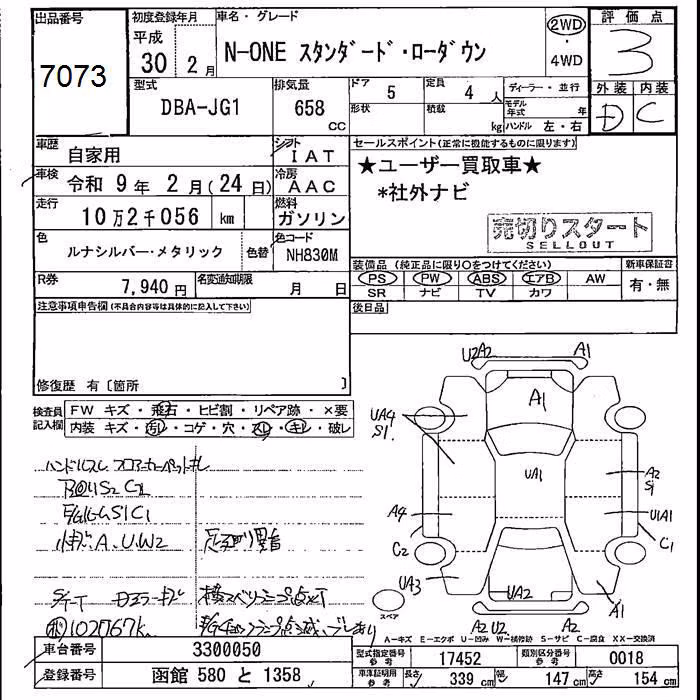 出品番号
7073
初度登録年月
平成
30 年 2 月
車名・グレード
N-ONE スタンダード・ローダウン
2WD
・
4WD
評価点
3
外装 内装
D C
型式
DBA-JG1
排気量
658
CC
ドア
5
定員
4 人
形状
積載
kg
ディーラー・並行
モデル年式 年
ハンドル 左・右
車歴
自家用
シフト
IAT
車検
令和 9 年 2 月 (24 日)
冷房
AAC
走行
10万2千056 km
燃料
ガソリン
色
ルナシルバー・メタリック
色替
色コード
NH830M
R券
7,940 円
名変通知期限
月 日
セールスポイント(正常に機能するものに限ります)
★ユーザー買取車★
*社外ナビ
売切りスタート
SELLOUT
装備品 (純正品に限り○をつけてください)
PS PW ABS エアB AW
SR ナビ TV カワ
新車保証書
有・無
後日品
注意事項申告欄(不具合内容等は具体的に記入して下さい)
修復歴 有〔箇所 〕
検査員記入欄
FW キズ・飛石・ヒビ割・リペア跡・×要
内装 キズ・汚レ・コゲ・穴・スレ・キレ・破レ
ハンドルスレ フロアーカーペットキレ
A.UW2
102067k
U2A2 A1
A1
UA4
S1.
UA1
A2
S1
A4
U1A1
C2
C1
UA3
UA2
A1
A2 U2 A2
スペア
A-キズ E-エクボ U-凹み W-補修跡 S-サビ C-腐食 XX-交換済
車台番号
3300050
登録番号
函館 580 と 1358
型式指定番号
参考
17452
類別区分番号
参考
0018
車庫証明用
参考
長さ 339 cm 幅 147 cm 高さ 154 cm